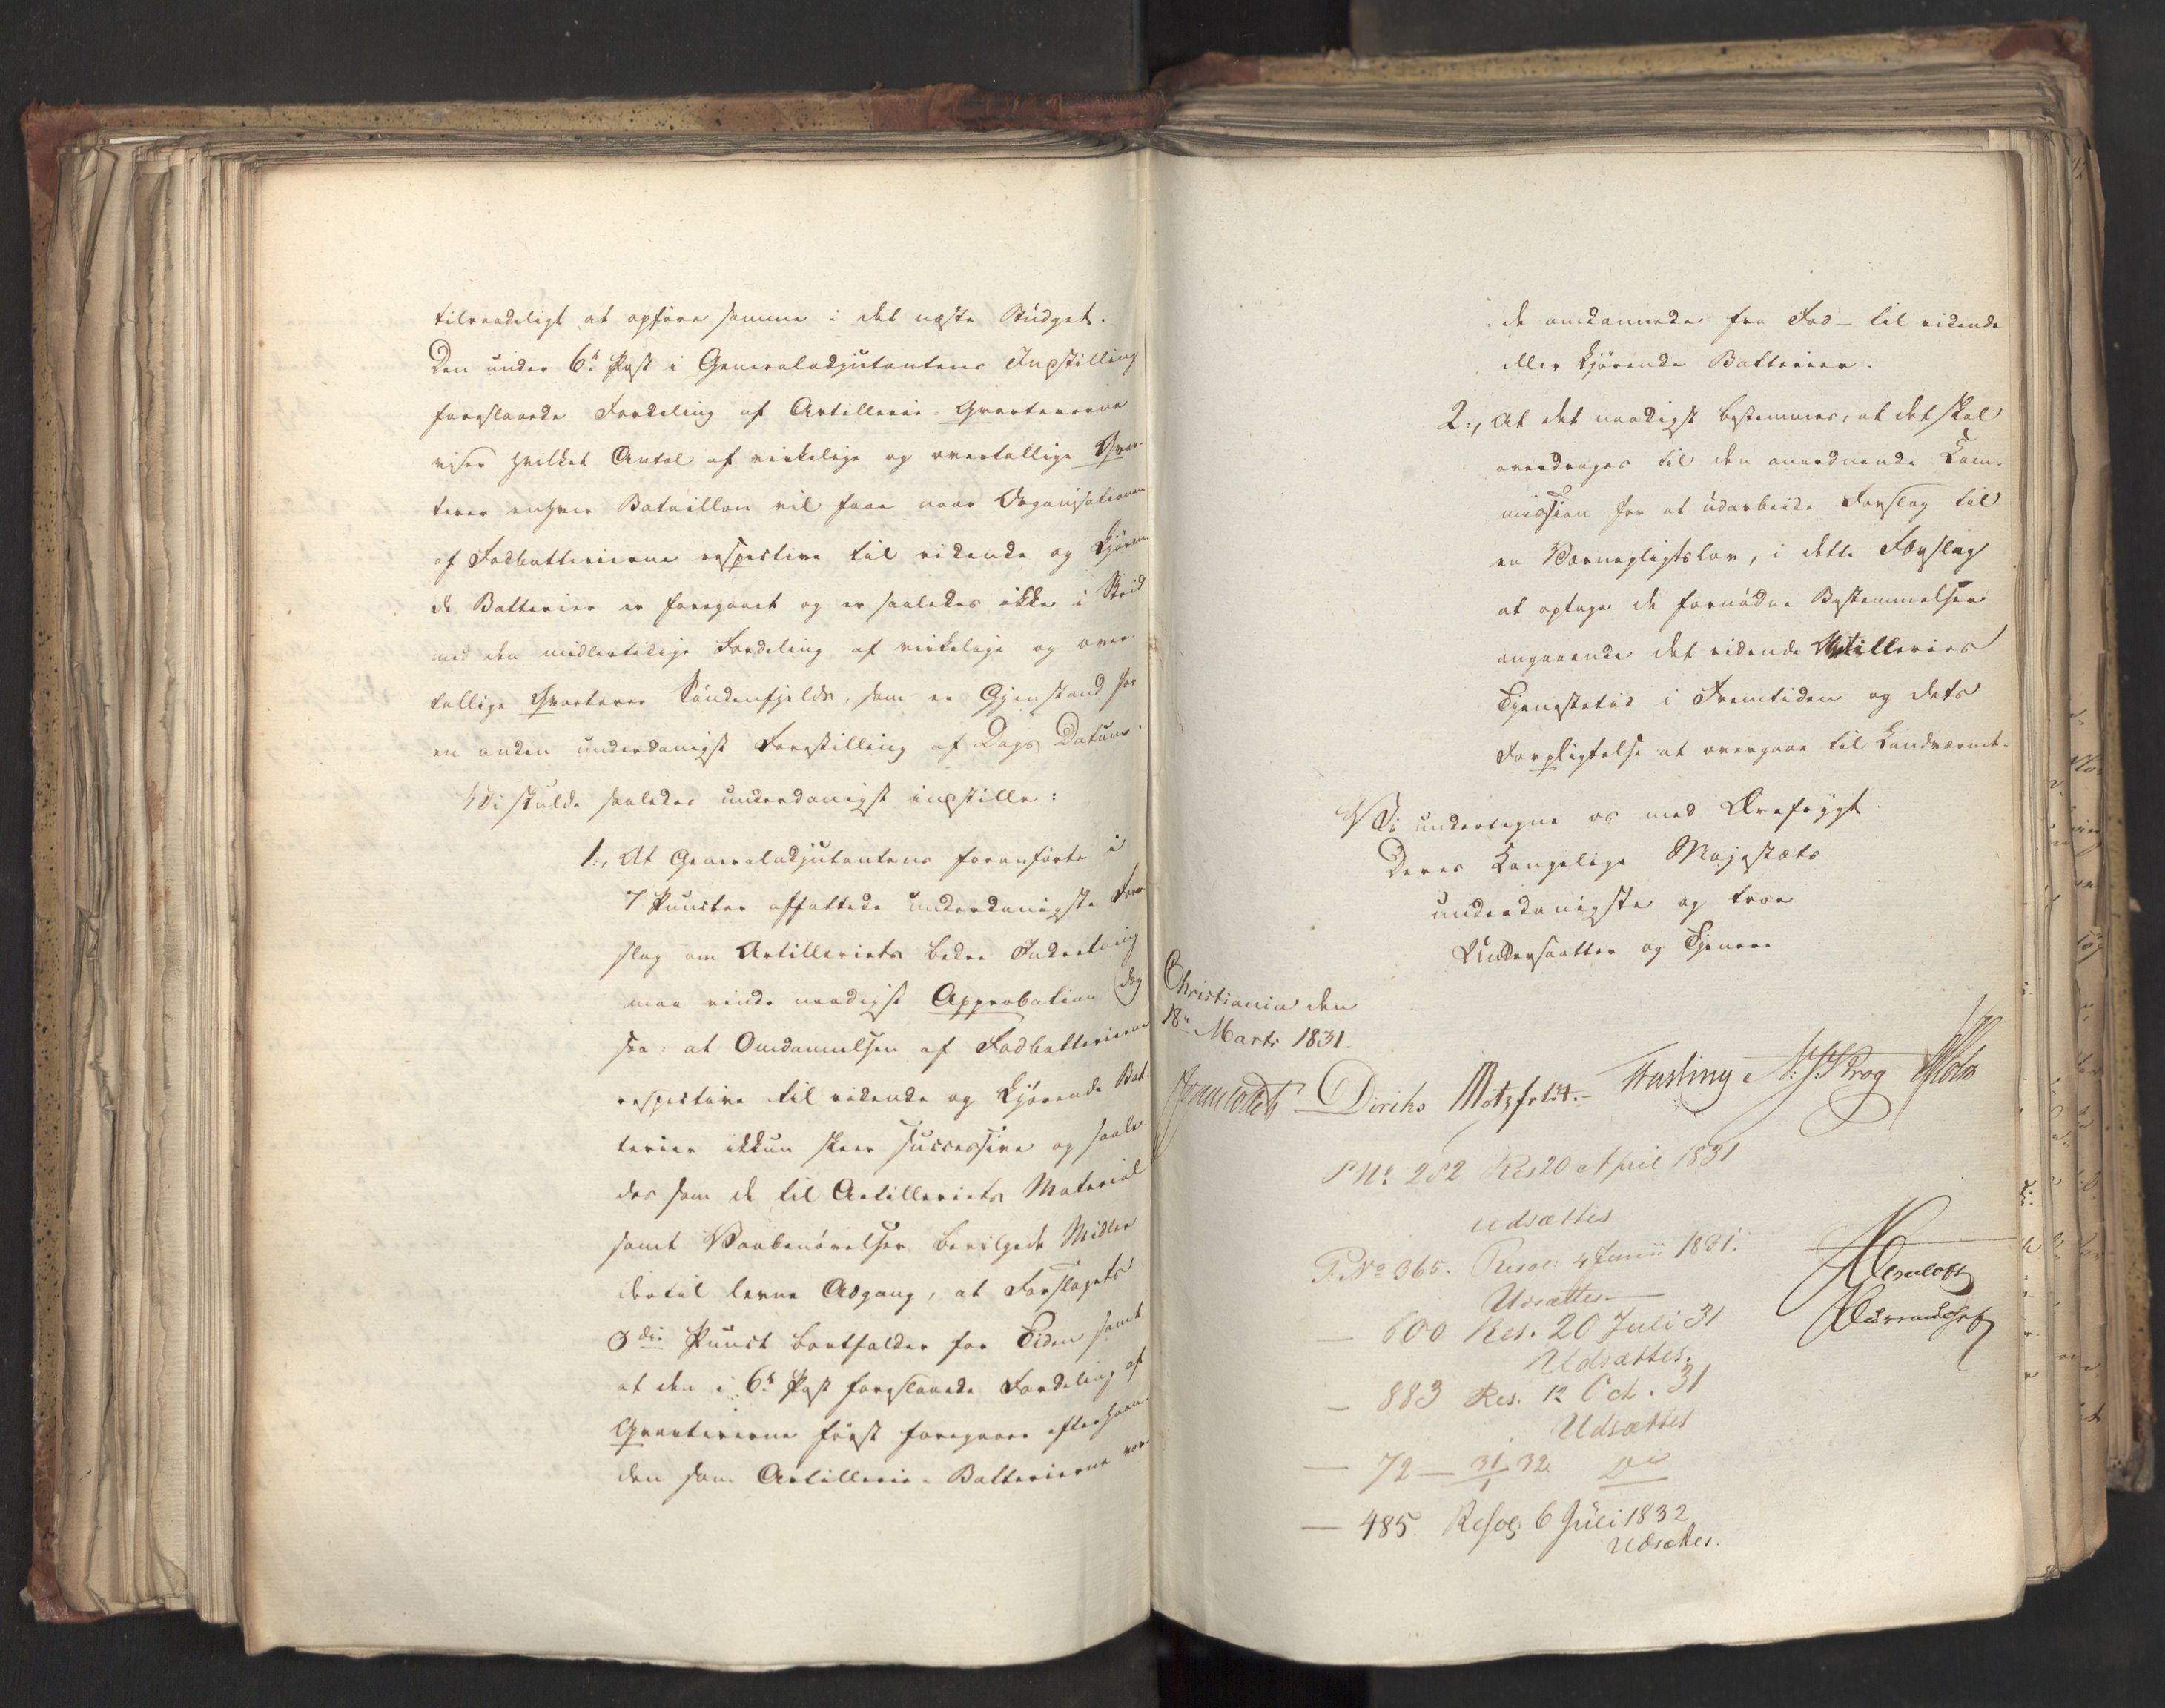 tilraadeligt at opføre samme i det næste Budget.
Den under 6te Post i Generaladjutantens Indstilling
foreslaaede Fordeling af Artillerie-Qvartererne
viser hvilket Antal af virkelige og overtallige Qvar-
terer enhver Bataillon vil faae naar Organisationen
af Fodbatterierne respective til ridende og kjøren-
de Batterier er foregaaet og er saaledes ikke i Strid
med den midlertidige Fordeling af virkelige og over-
tallige Qvarterer Søndenfjelds, som er Gjenstand for
en anden underdanigst Forestilling af Dags Datum.
Vi skulde saaledes underdanigst indstille:
1., At Generaladjutantens foranførte i
7 Puncter affattede underdanigste For-
slag om Artilleriets bedre Indretning
maa vinde naadigst Approbation dog
saa: at Omdannelsen af Fodbatterierne
respective til ridende og kjørende Bat-
terier ikkun skeer successive og saale-
des som de til Artilleriets Materiel
samt Vaabenøvelser bevilgede Midler
dertil levne Adgang, at Forslagets
3die Punct bortfalder for Tiden samt
at den i 6te Post foreslaaede Fordeling af
Qvartererne først foregaaer efterhaan-
den som Artillerie-Batterierne vor-
de omdannede fra Fod- til ridende
eller kjørende Batterier.
2., At det naadigst bestemmes, at det skal
overdrages til den anordnende Com-
mission for at udarbeide Forslag til
en Værnepligtslov, i dette Forslag
at optage de fornødne Bestemmelser
angaaende det ridende Artilleries
Tjenestetid i Fremtiden og dets
Forpligtelse at overgaae til Landværnet.
Vi undertegne os med Ærefrygt
Deres Kongelige Majestæts
underdanigste og troe
Undersaatter og Tjenere
Christiania den
18de Marts 1831.
J Collett Diriks Motzfeldt. Fasting N: J: Krog Holst
P No 282 Res 20 April 1831
udsættes
P. No 365. Resol: 4 Junii 1831.
Udsættes
— 600 Res. 20 Juli 31
Udsættes.
— 883 Res. 12 Oct. 31
Udsættes
— 72 — 31/1 32 do
— 485. Resol: 6 Juli 1832
udsættes.